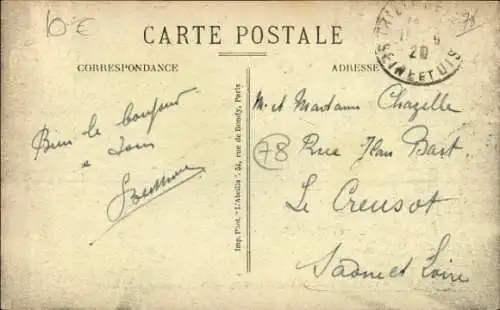 10 €
CARTE POSTALE
CORRESPONDANCE
ADRESSE
20
SEINE ET OISE
Bien le bonjour
à tous
Imp. Phot. "L'Abeille" 54, rue de Bondy, Paris
78
Mr et Madame Chazelle
Rue Jean Bart
Le Creusot
Saône et Loire